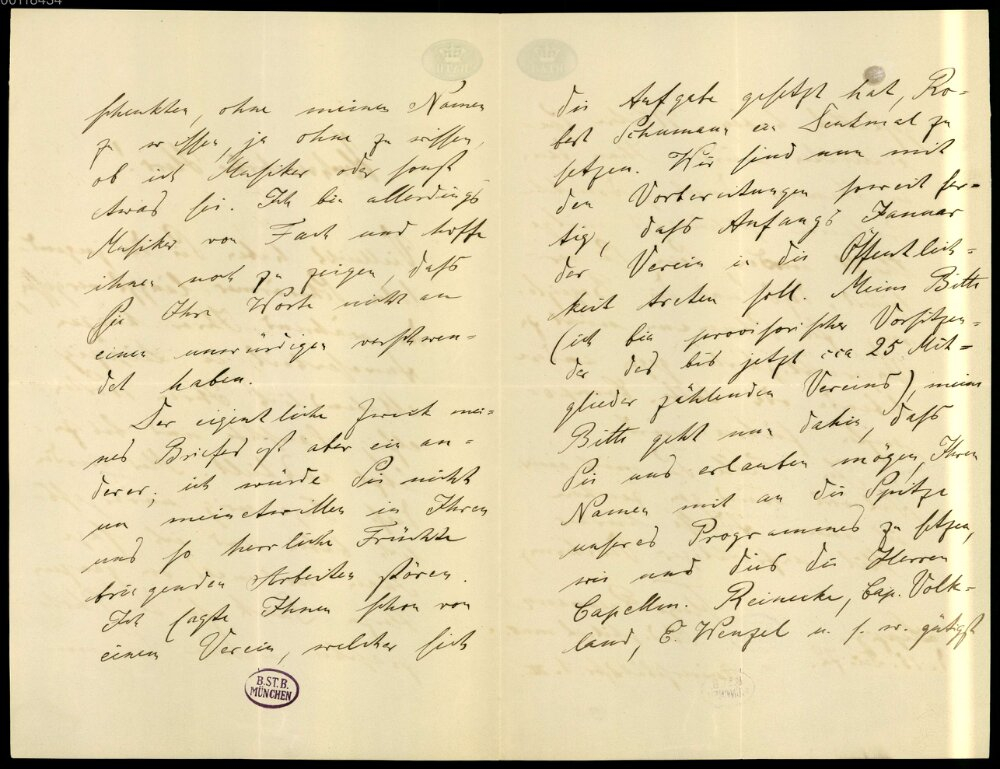 00118454
schenkten, ohne meinen Namen
zu wissen, ja ohne zu wissen,
ob ich Musiker oder sonst
etwas sei. Ich bin allerdings
Musiker von Fach und hoffe
ihnen noch zu zeigen, dass
Sie Ihre Worte nicht an
einen unwürdigen verschwen-
det haben.
Der eigentliche Zweck mei-
nes Briefes ist aber ein an-
derer; ich würde Sie nicht
um meinetwillen in Ihren
uns so herrliche Früchte
bringenden Arbeiten stören.
Ich sagte Ihnen schon von
einem Verein, welcher sich
B.ST.B.
MÜNCHEN
die Aufgabe gesetzt hat, Ro-
bert Schumann ein Denkmal zu
setzen. Wir sind nun mit
den Vorbereitungen soweit fer-
tig, dass Anfangs Januar
der Verein in die Öffentlich-
keit treten soll. Meine Bitte
(ich bin provisorischer Vorsitzen-
der des bis jetzt cca 25 Mit-
glieder zählenden Vereins) meine
Bitte geht nun dahin, dass
Sie uns erlauben mögen, Ihren
Namen mit an die Spitze
unseres Programmes zu setzen,
wie uns dies die Herren
Capellm. Reinecke, Cap. Volk-
land, E. Wenzel u. s. w. gütigst